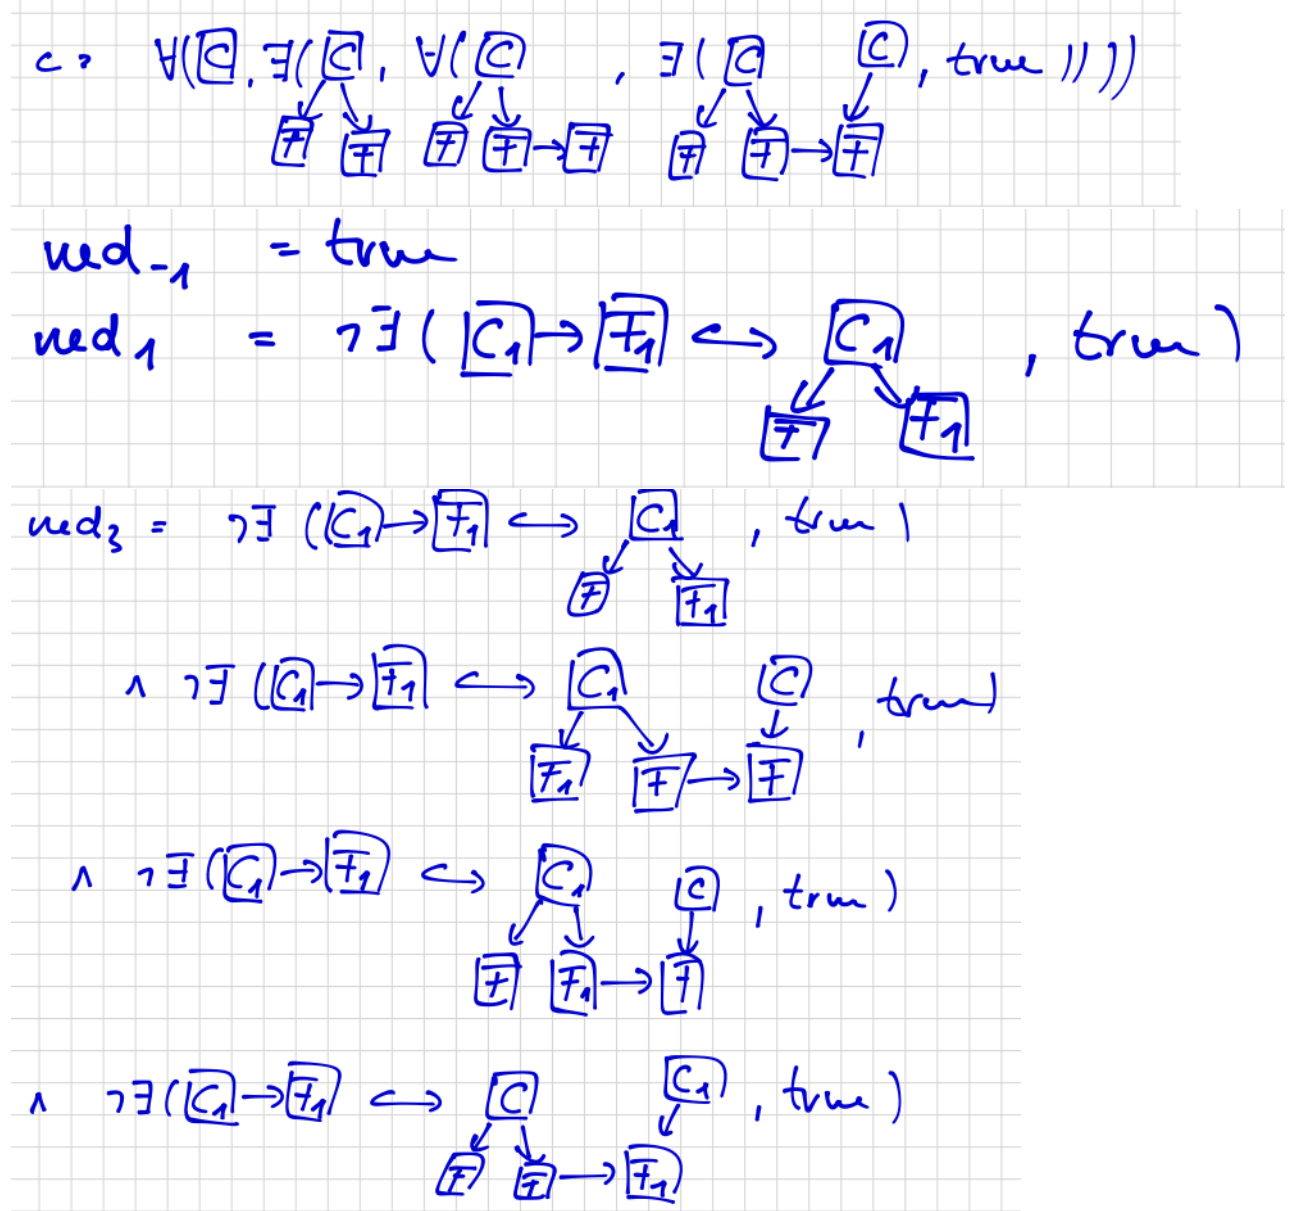 c = ∀(C, ∃(C, ∀(C , ∃(C C, true))))
F F F F → F F F → F
ned₋₁ = true
ned₁ = ¬∃(C₁ → F₁ ↪ C₁ , true)
F F₁
ned₃ = ¬∃(C₁ → F₁ ↪ C₁ , true)
F F₁
∧ ¬∃(C₁ → F₁ ↪ C₁ C , true)
F₁ F → F
∧ ¬∃(C₁ → F₁ ↪ C₁ C , true)
F F₁ → F
∧ ¬∃(C₁ → F₁ ↪ C C₁ , true)
F F → F₁